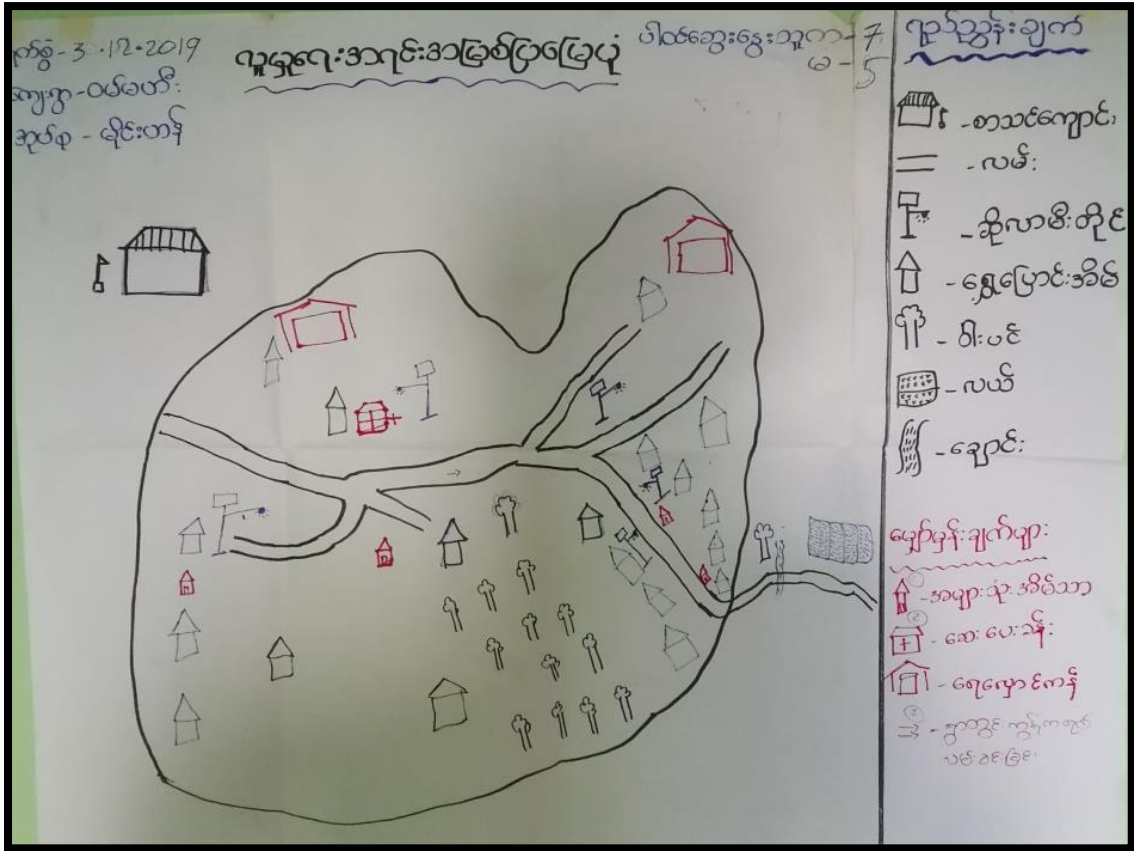 ရက်စွဲ - 3.12.2019
ကျေးရွာ - ဝမ်မတီး
အုပ်စု - မိုင်းဟန်
လူမှုရေးအရင်းအမြစ်ပြမြေပုံ
ပါဝင်ဆွေးနွေးသူ ကျ - 7
မ - 5
ရည်ညွှန်းချက်
- စာသင်ကျောင်း
- လမ်း
- ဆိုလာမီးတိုင်
- ရွှေ့ပြောင်းအိမ်
- ဝါးပင်
- လယ်
- ချောင်း
မျှော်မှန်းချက်များ
1 - အများသုံးအိမ်သာ
2 - ဆေးပေးခန်း
- ရေလှောင်ကန်
- ရွာတွင်းကွန်ကရစ်
လမ်းခင်းခြင်း